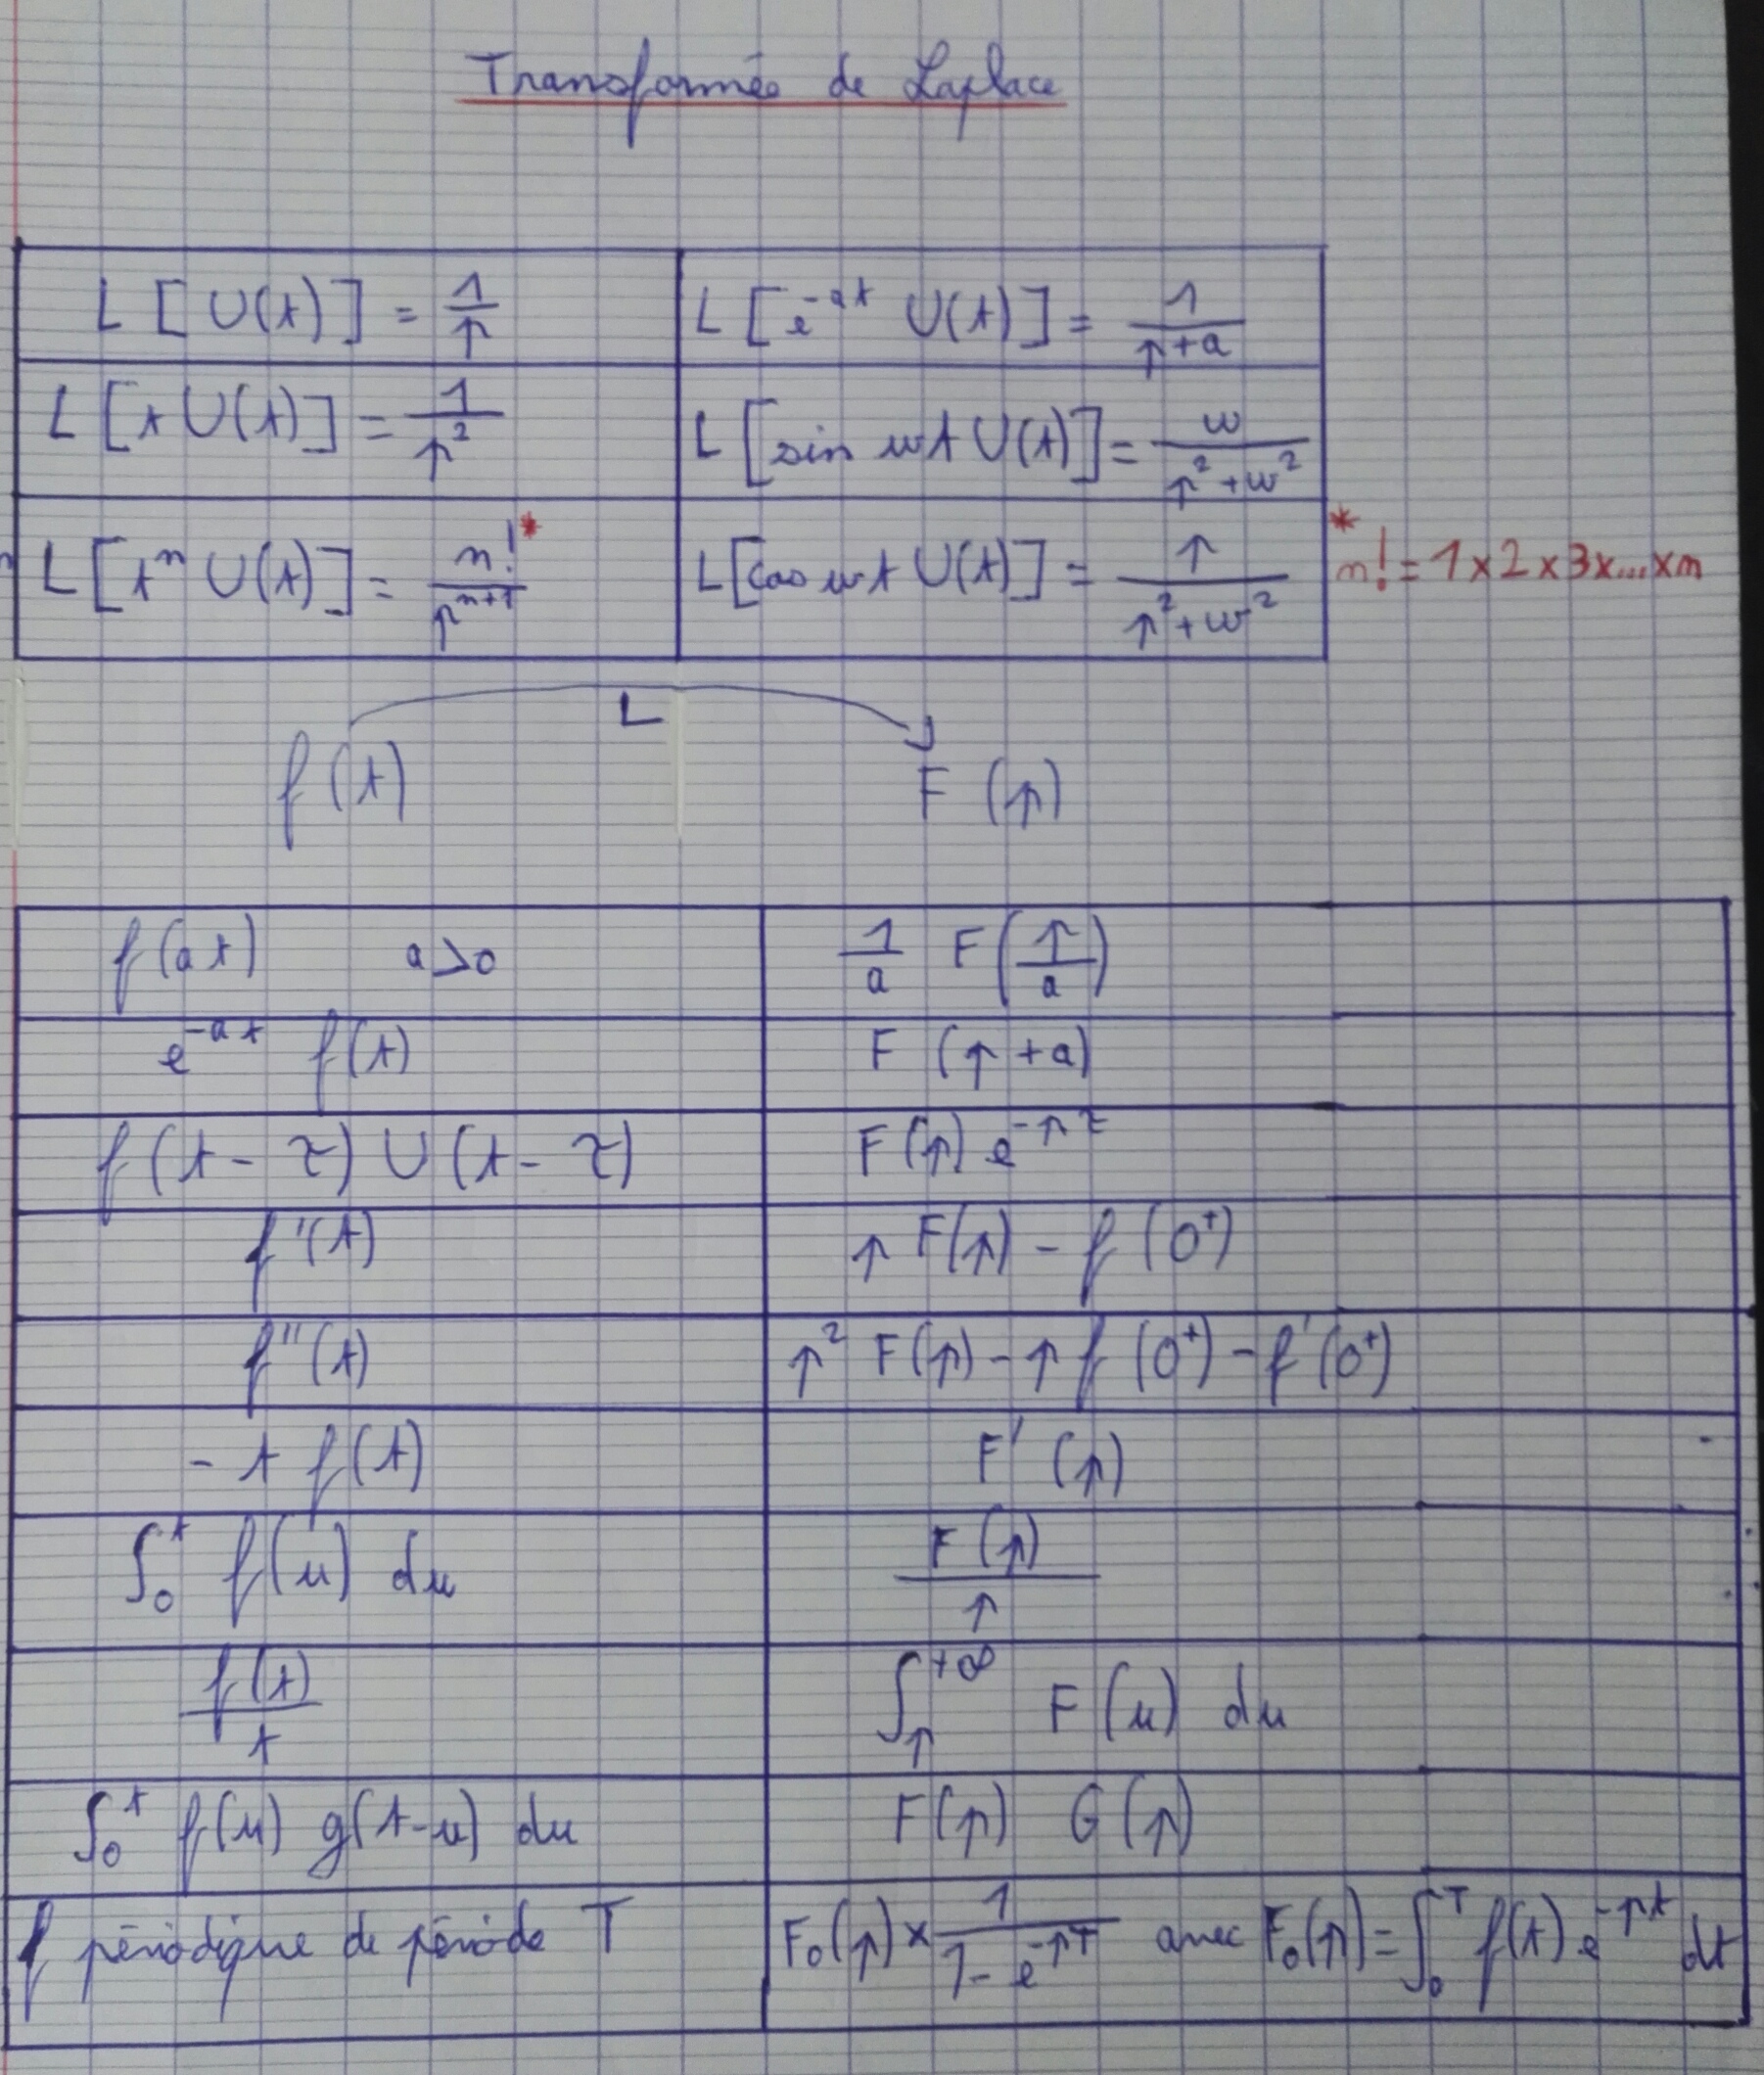 Transformée de Laplace
L [U(t)] = 1/p
L [e^{-at} U(t)] = 1/(p+a)
L [t U(t)] = 1/p²
L [sin ωt U(t)] = ω/(p²+ω²)
L [tⁿ U(t)] = n!*/p^{n+1}
L [cos ωt U(t)] = p/(p²+ω²)
* n! = 1×2×3×...×n
L
f(t) F(p)
f(at) a>0
1/a F(p/a)
e^{-at} f(t)
F (p+a)
f(t-τ) U(t-τ)
F(p) e^{-pτ}
f'(t)
p F(p) - f(0⁺)
f''(t)
p² F(p) - p f(0⁺) - f'(0⁺)
-t f(t)
F'(p)
∫₀^t f(u) du
F(p)/p
f(t)/t
∫_p^{+∞} F(u) du
∫₀^t f(u) g(t-u) du
F(p) G(p)
f périodique de période T
F₀(p) × 1/(1-e^{-pT}) avec F₀(p) = ∫₀^T f(t) e^{-pt} dt